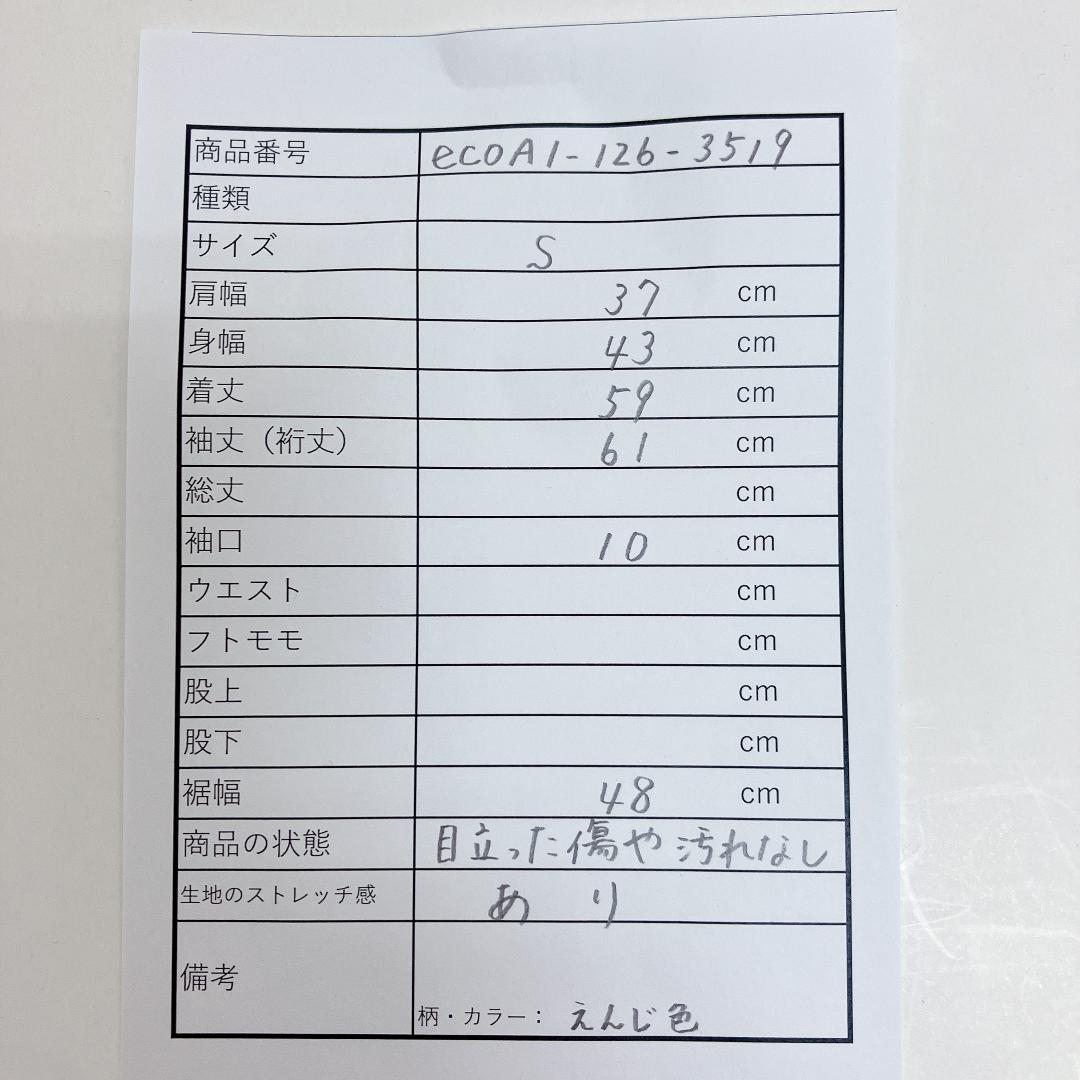 商品番号 ecoA1-126-3519
種類
サイズ S
肩幅 37 cm
身幅 43 cm
着丈 59 cm
袖丈（裄丈） 61 cm
総丈 cm
袖口 10 cm
ウエスト cm
フトモモ cm
股上 cm
股下 cm
裾幅 48 cm
商品の状態 目立った傷や汚れなし
生地のストレッチ感 あり
備考
柄・カラー： えんじ色